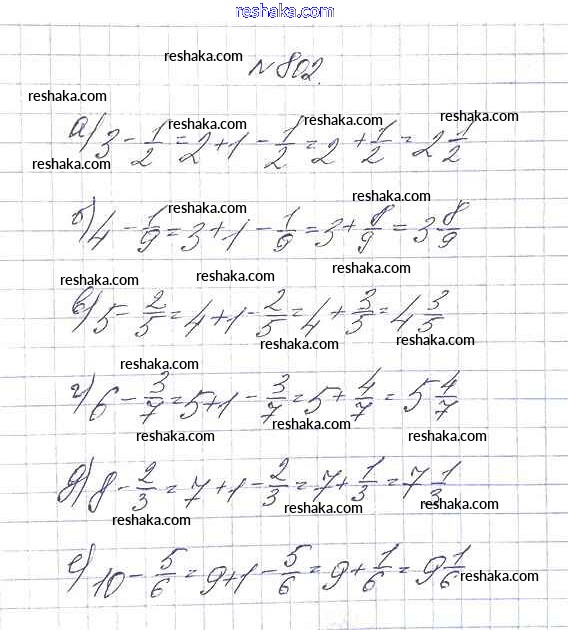 reshaka.com
reshaka.com
№ 802.
reshaka.com
reshaka.com reshaka.com
а) 3 - 1/2 = 2 + 1 - 1/2 = 2 + 1/2 = 2 1/2
reshaka.com reshaka.com
reshaka.com
reshaka.com
б) 4 - 1/9 = 3 + 1 - 1/9 = 3 + 8/9 = 3 8/9
reshaka.com reshaka.com reshaka.com
в) 5 - 2/5 = 4 + 1 - 2/5 = 4 + 3/5 = 4 3/5
reshaka.com reshaka.com
reshaka.com
г) 6 - 3/7 = 5 + 1 - 3/7 = 5 + 4/7 = 5 4/7
reshaka.com reshaka.com
reshaka.com
д) 8 - 2/3 = 7 + 1 - 2/3 = 7 + 1/3 = 7 1/3
reshaka.com reshaka.com
е) 10 - 5/6 = 9 + 1 - 5/6 = 9 + 1/6 = 9 1/6
reshaka.com
reshaka.com